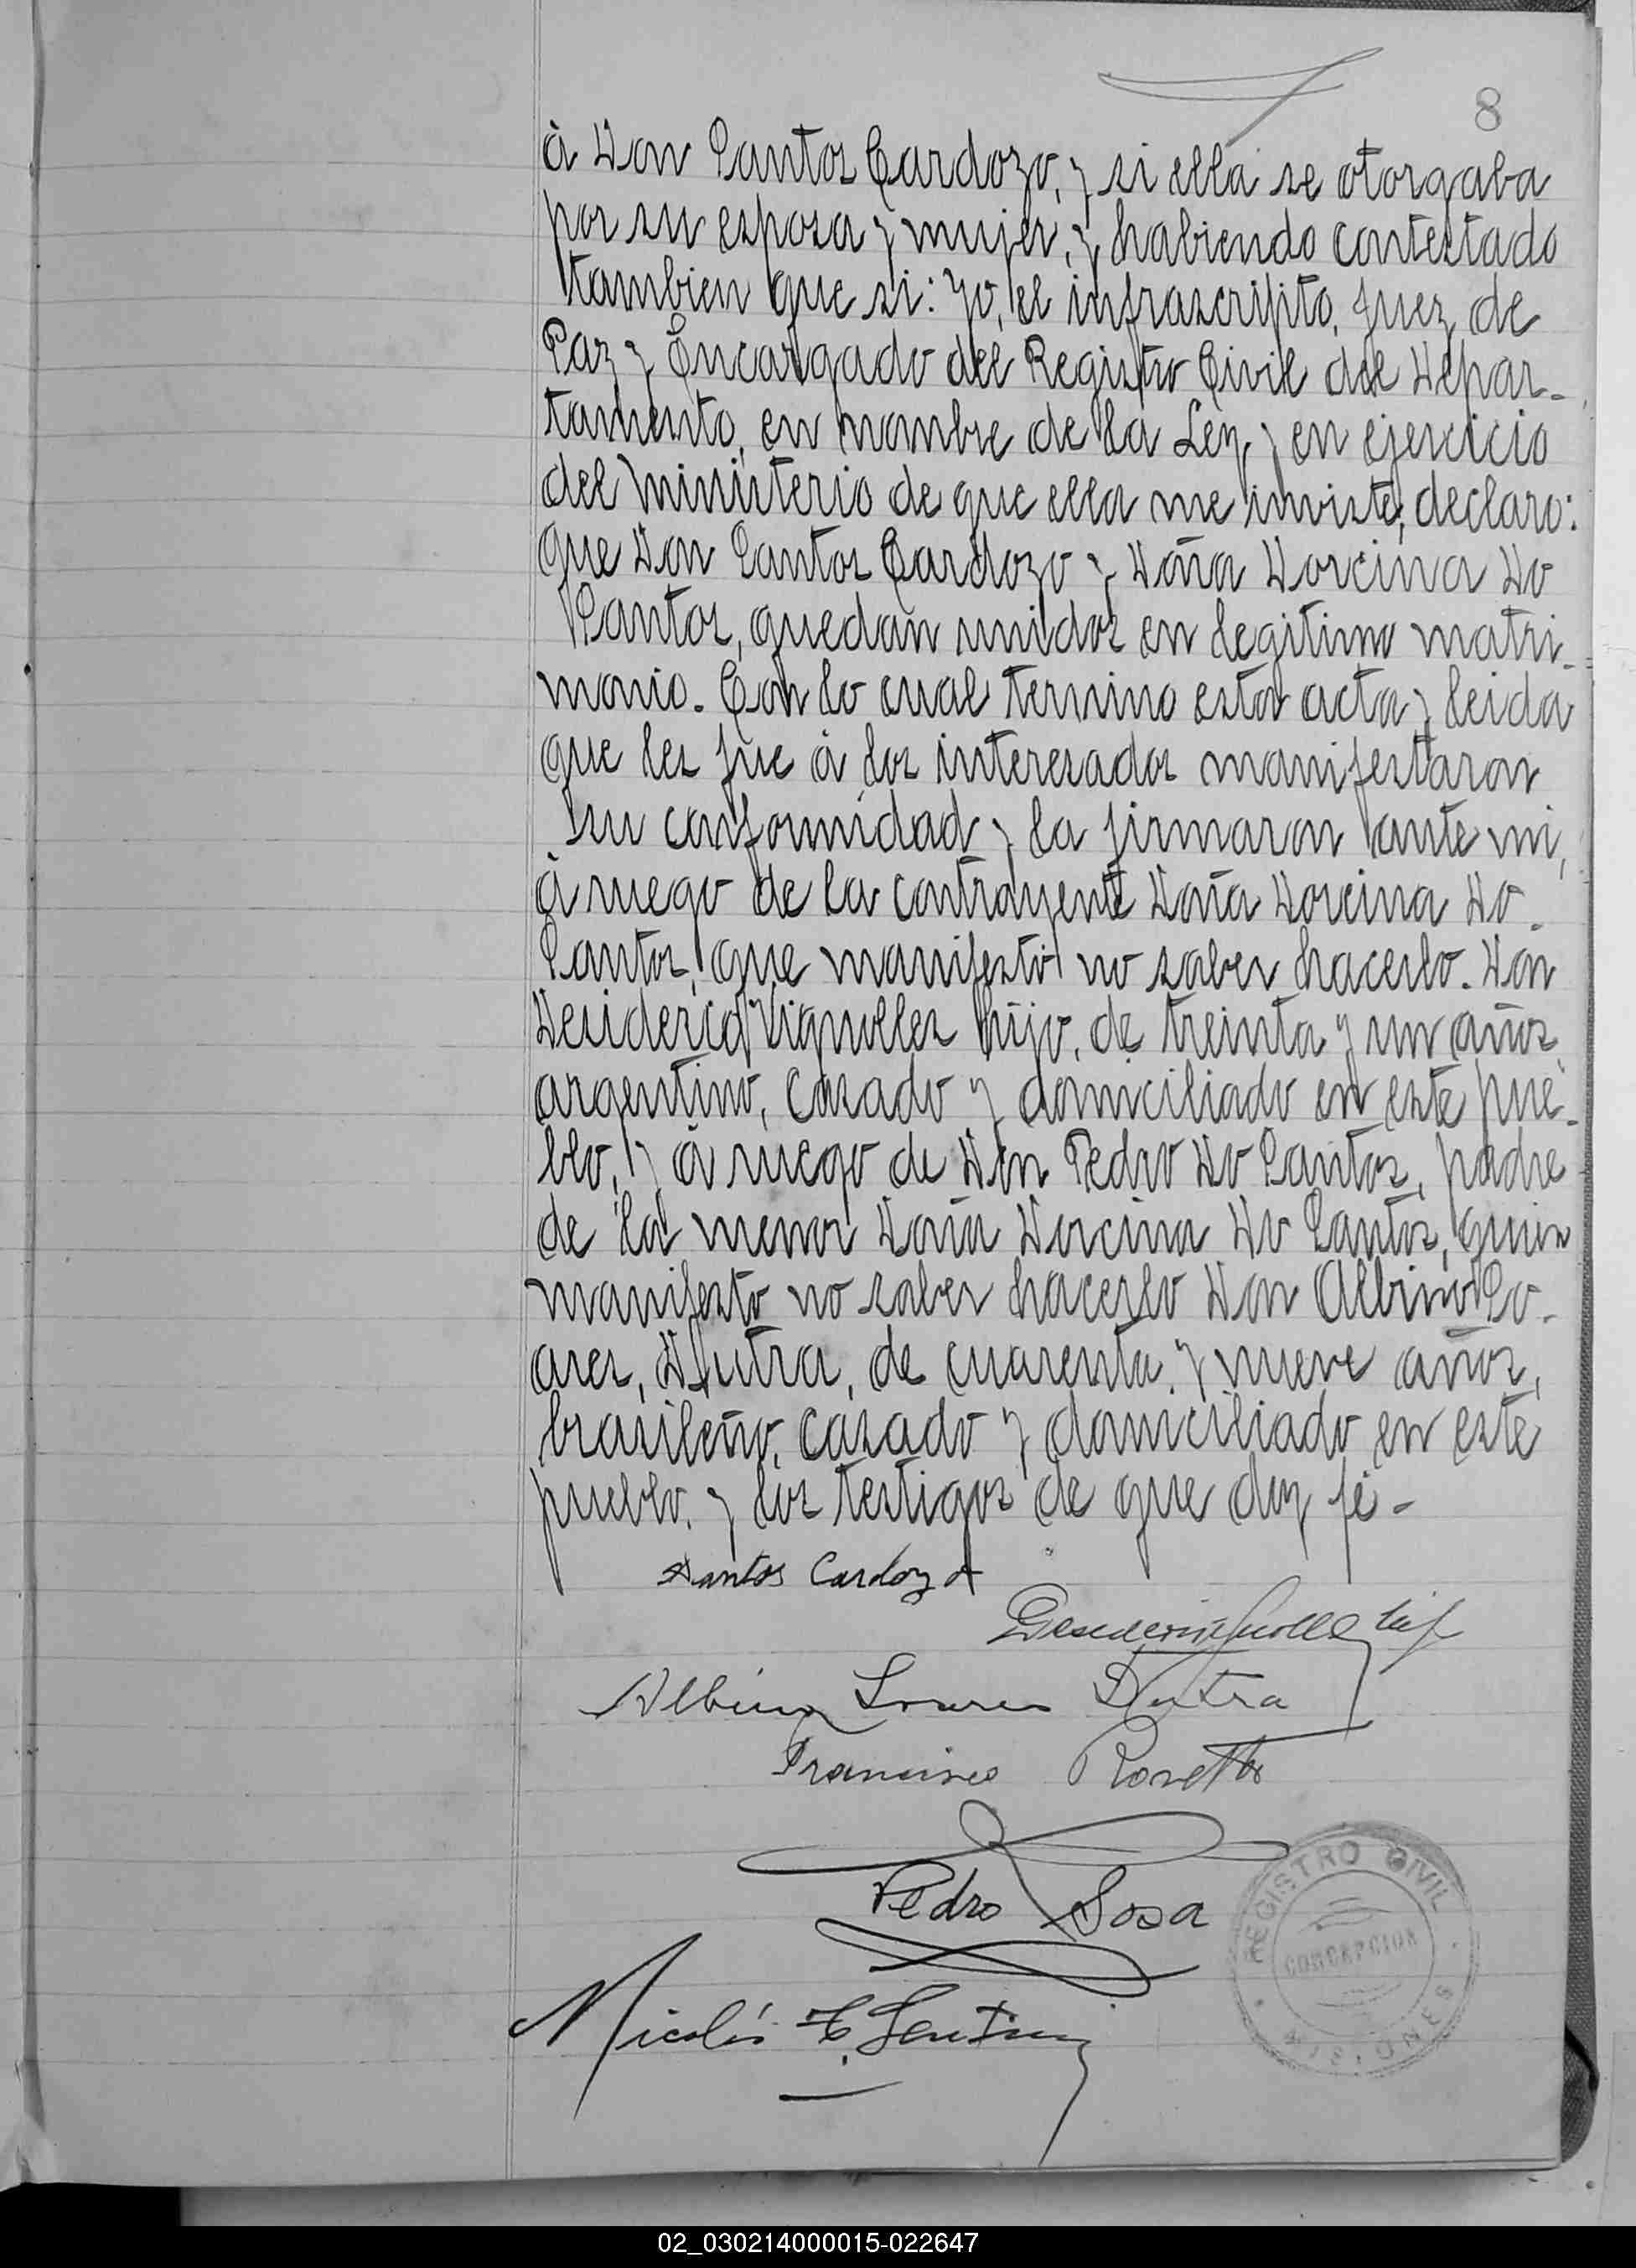 8
à Don Santos Cardozo, y si ella se otorgaba
por su esposa y mujer, y habiendo contestado
tambien que si: Yo, el infrascripto, Juez de
Paz y Encargado del Registro Civil del Depar-
tamento, en nombre de la Ley y en ejercicio
del ministerio de que ella me inviste, declaro:
que Don Santos Cardozo y Doña Dorcina Do
Santos, quedan unidos en legitimo matri-
monio. Con lo cual termino esta acta y leida
que les fue à los interesados manifestaron
su conformidad y la firmaron ante mi,
à ruego de la contrayente Doña Dorcina Do
Santos, que manifestó no saber hacerlo. Don
Desiderio Vignolles hijo, de treinta y un años,
argentino, casado y domiciliado en este pue-
blo, y à ruego de Don Pedro Do Santos, padre
de la menor Doña Dorcina Do Santos, quien
manifesto no saber hacerlo Don Albino So-
ares, Dutra, de cuarenta y nueve años,
brasileño, casado y domiciliado en este
pueblo, y los testigos de que doy fé-
Santos Cardozo
Albino Soares Dutra
Francisco
Pedro Sosa
Nicolás
REGISTRO CIVIL
CONCEPCION
MISIONES
02_030214000015-022647